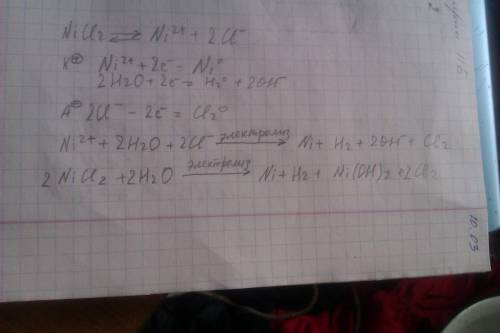 NiCl₂ ⇄ Ni²⁺ + 2Cl⁻
K⊖ Ni²⁺ + 2e⁻ = Ni⁰
2H₂O + 2e⁻ = H₂⁰ + 2OH⁻
A⊕ 2Cl⁻ - 2e⁻ = Cl₂⁰
Ni²⁺ + 2H₂O + 2Cl⁻ электролиз → Ni + H₂ + 2OH⁻ + Cl₂
2 NiCl₂ + 2H₂O электролиз → Ni + H₂ + Ni(OH)₂ + 2Cl₂
10.03